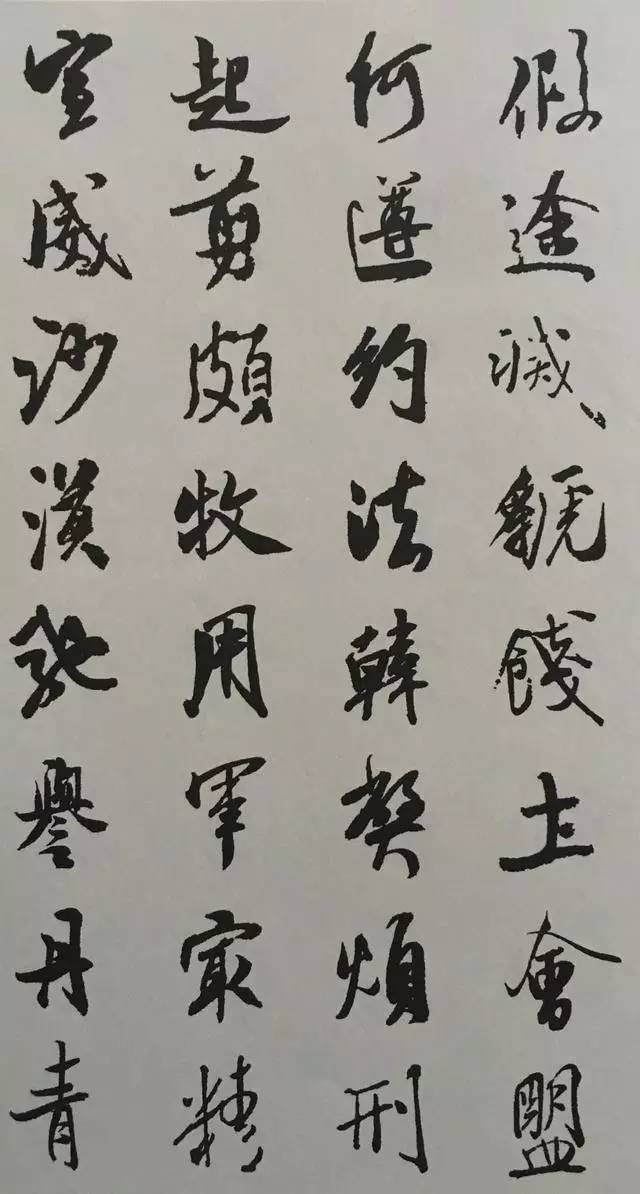 假途滅虢餞土會盟
何遵約法韓弊煩刑
起剪頗牧用軍最精
宣威沙漠馳譽丹青